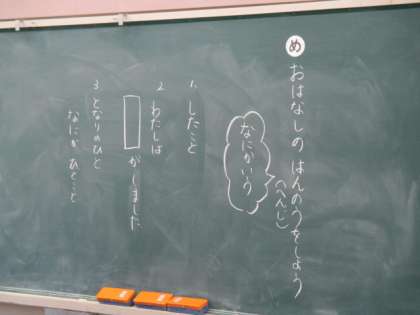 め
おはなしの はんのうをしよう
(へんじ)
なにかいう
1. したこと
2 わたしは
がしました
3 となりのひと
なにか ひとこと